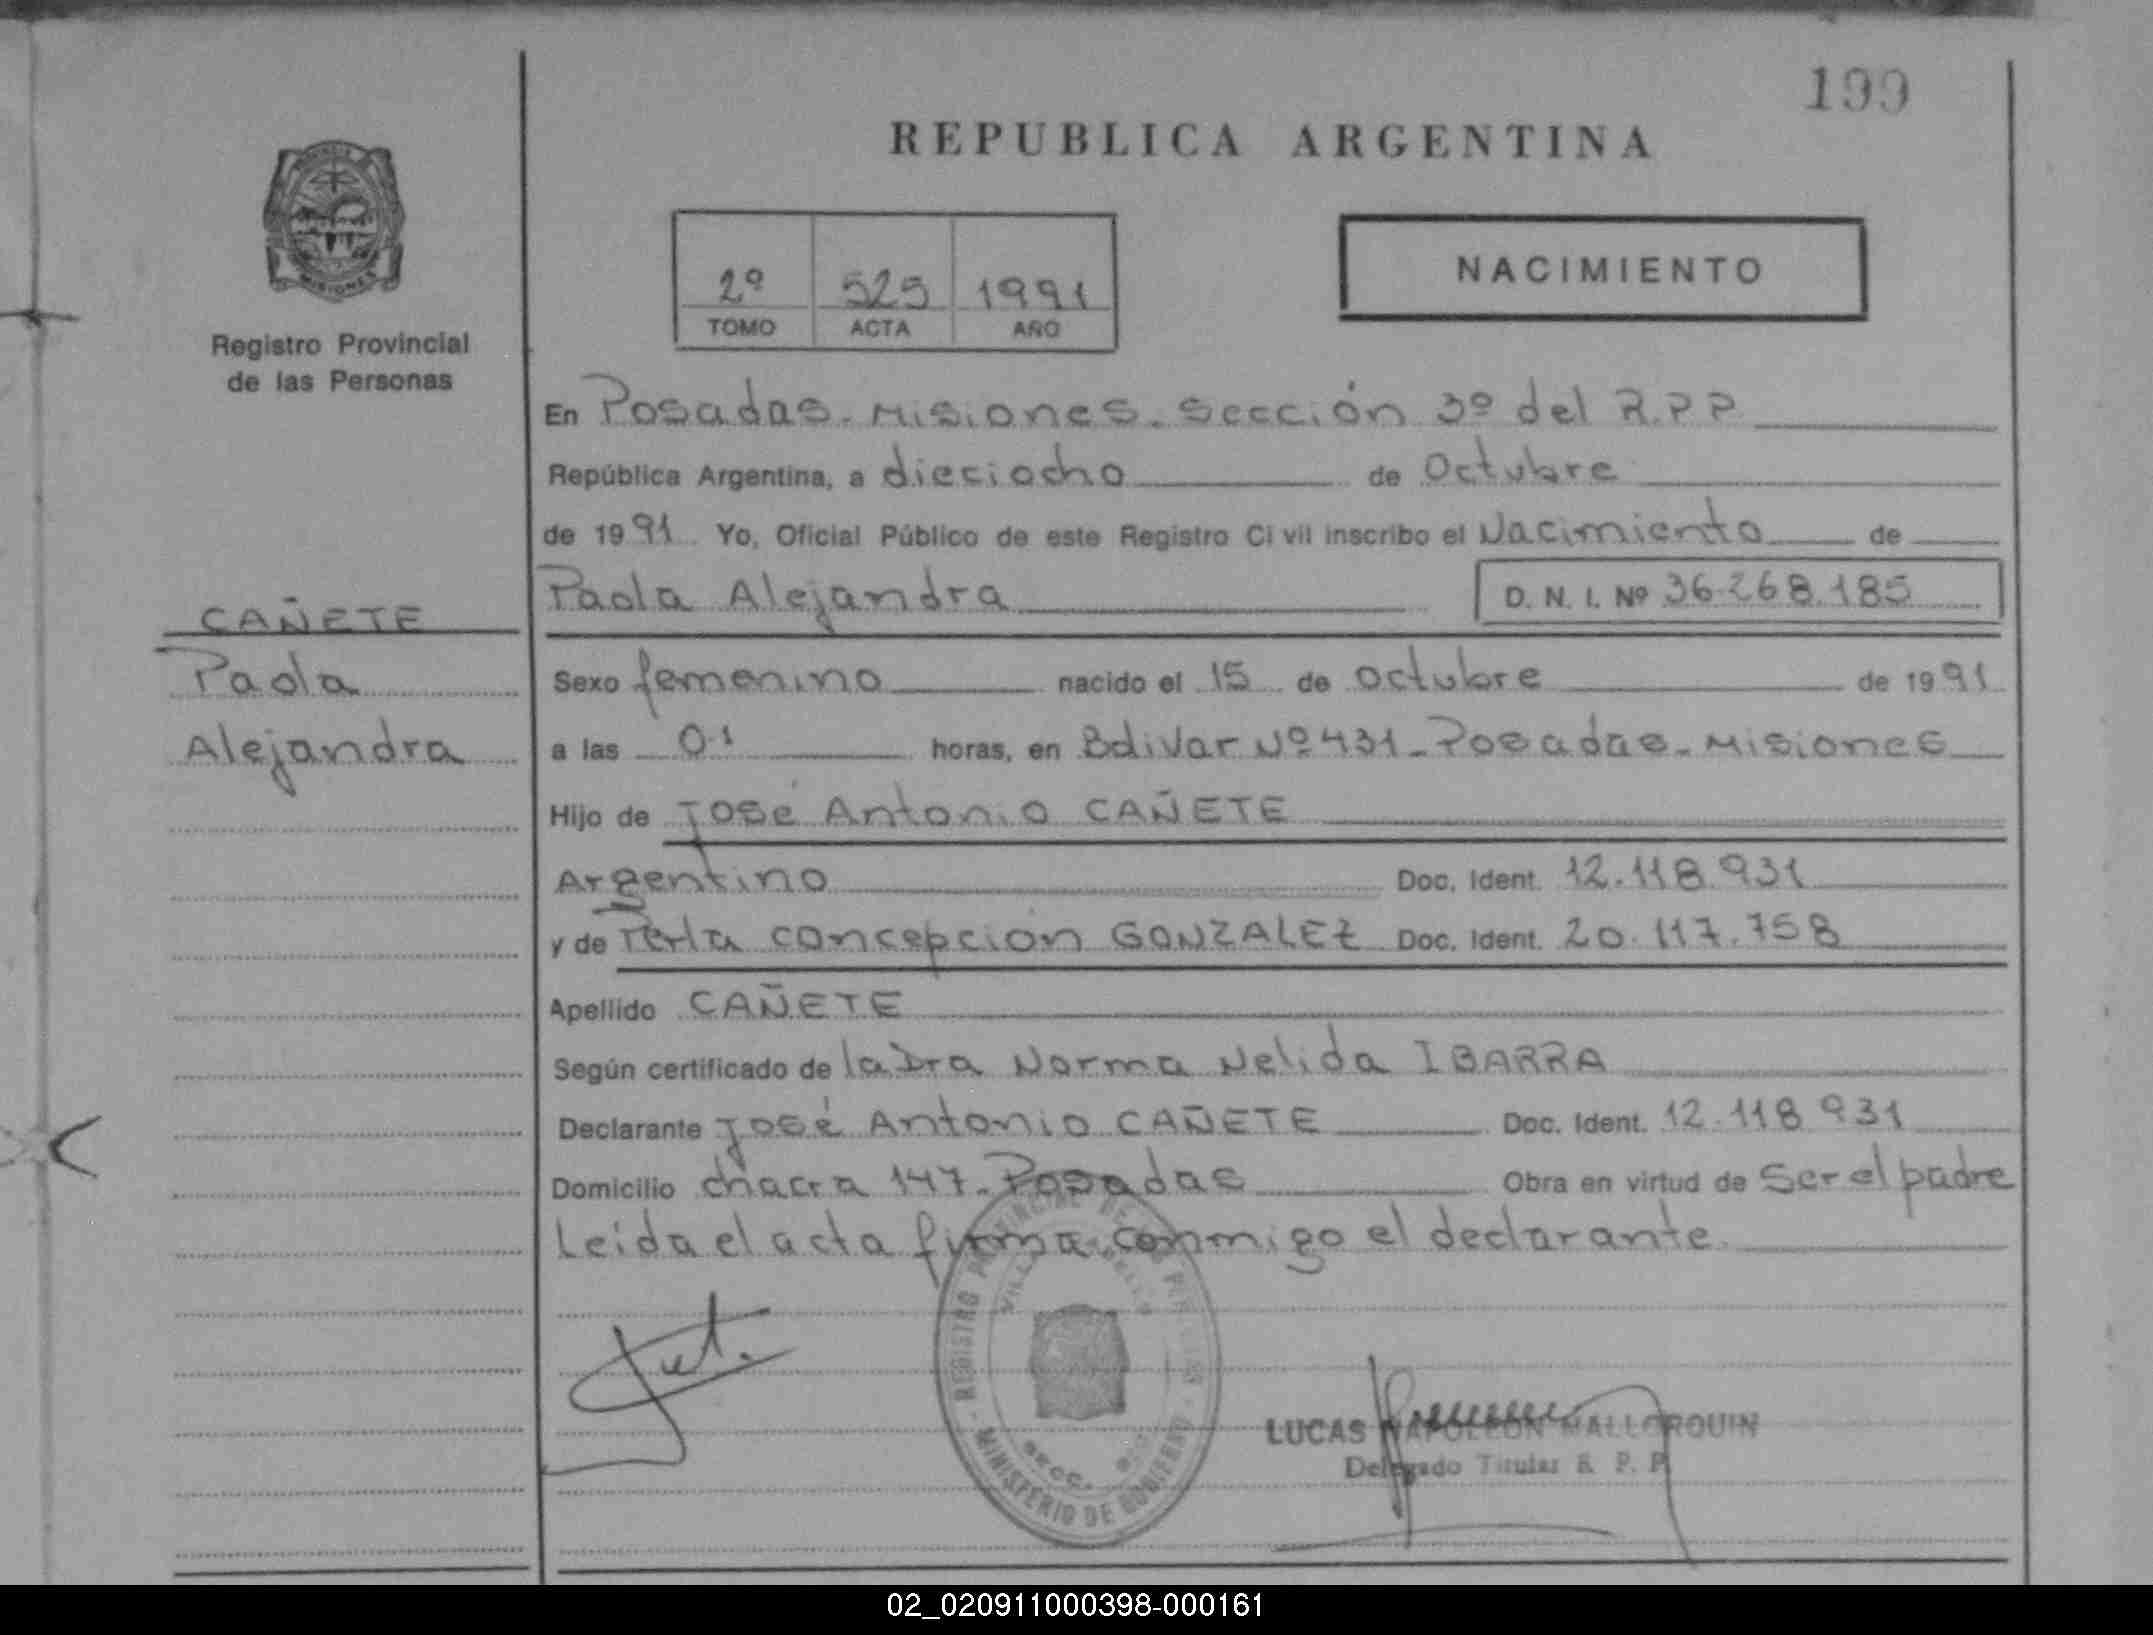 199
REPUBLICA ARGENTINA
MISIONES
Registro Provincial
de las Personas
2º 525 1991
TOMO ACTA AÑO
NACIMIENTO
En Posadas - Misiones - Sección 3º del R.P.P
República Argentina, a dieciocho de Octubre
de 1991 Yo, Oficial Público de este Registro Civil inscribo el Nacimiento de
Paola Alejandra D. N. I. Nº 36.268.185
CAÑETE
Paola
Alejandra
Sexo femenino nacido el 15 de octubre de 1991
a las 01 horas, en Bolivar Nº 431 - Posadas - Misiones
Hijo de José Antonio CAÑETE
Argentino Doc. Ident. 12.118.931
y de Perla concepcion GONZALEZ Doc. Ident. 20.117.758
Apellido CAÑETE
Según certificado de la Dra Norma Nelida IBARRA
Declarante José Antonio CAÑETE Doc. Ident. 12.118 931
Domicilio chacra 147 - Posadas Obra en virtud de Ser el padre
Leída el acta firma conmigo el declarante
REGISTRO PROVINCIAL DE LAS PERSONAS
MINISTERIO DE GOBIERNO
LUCAS NAPOLEON MALLORQUIN
Delegado Titular R. P. P.
02_020911000398-000161